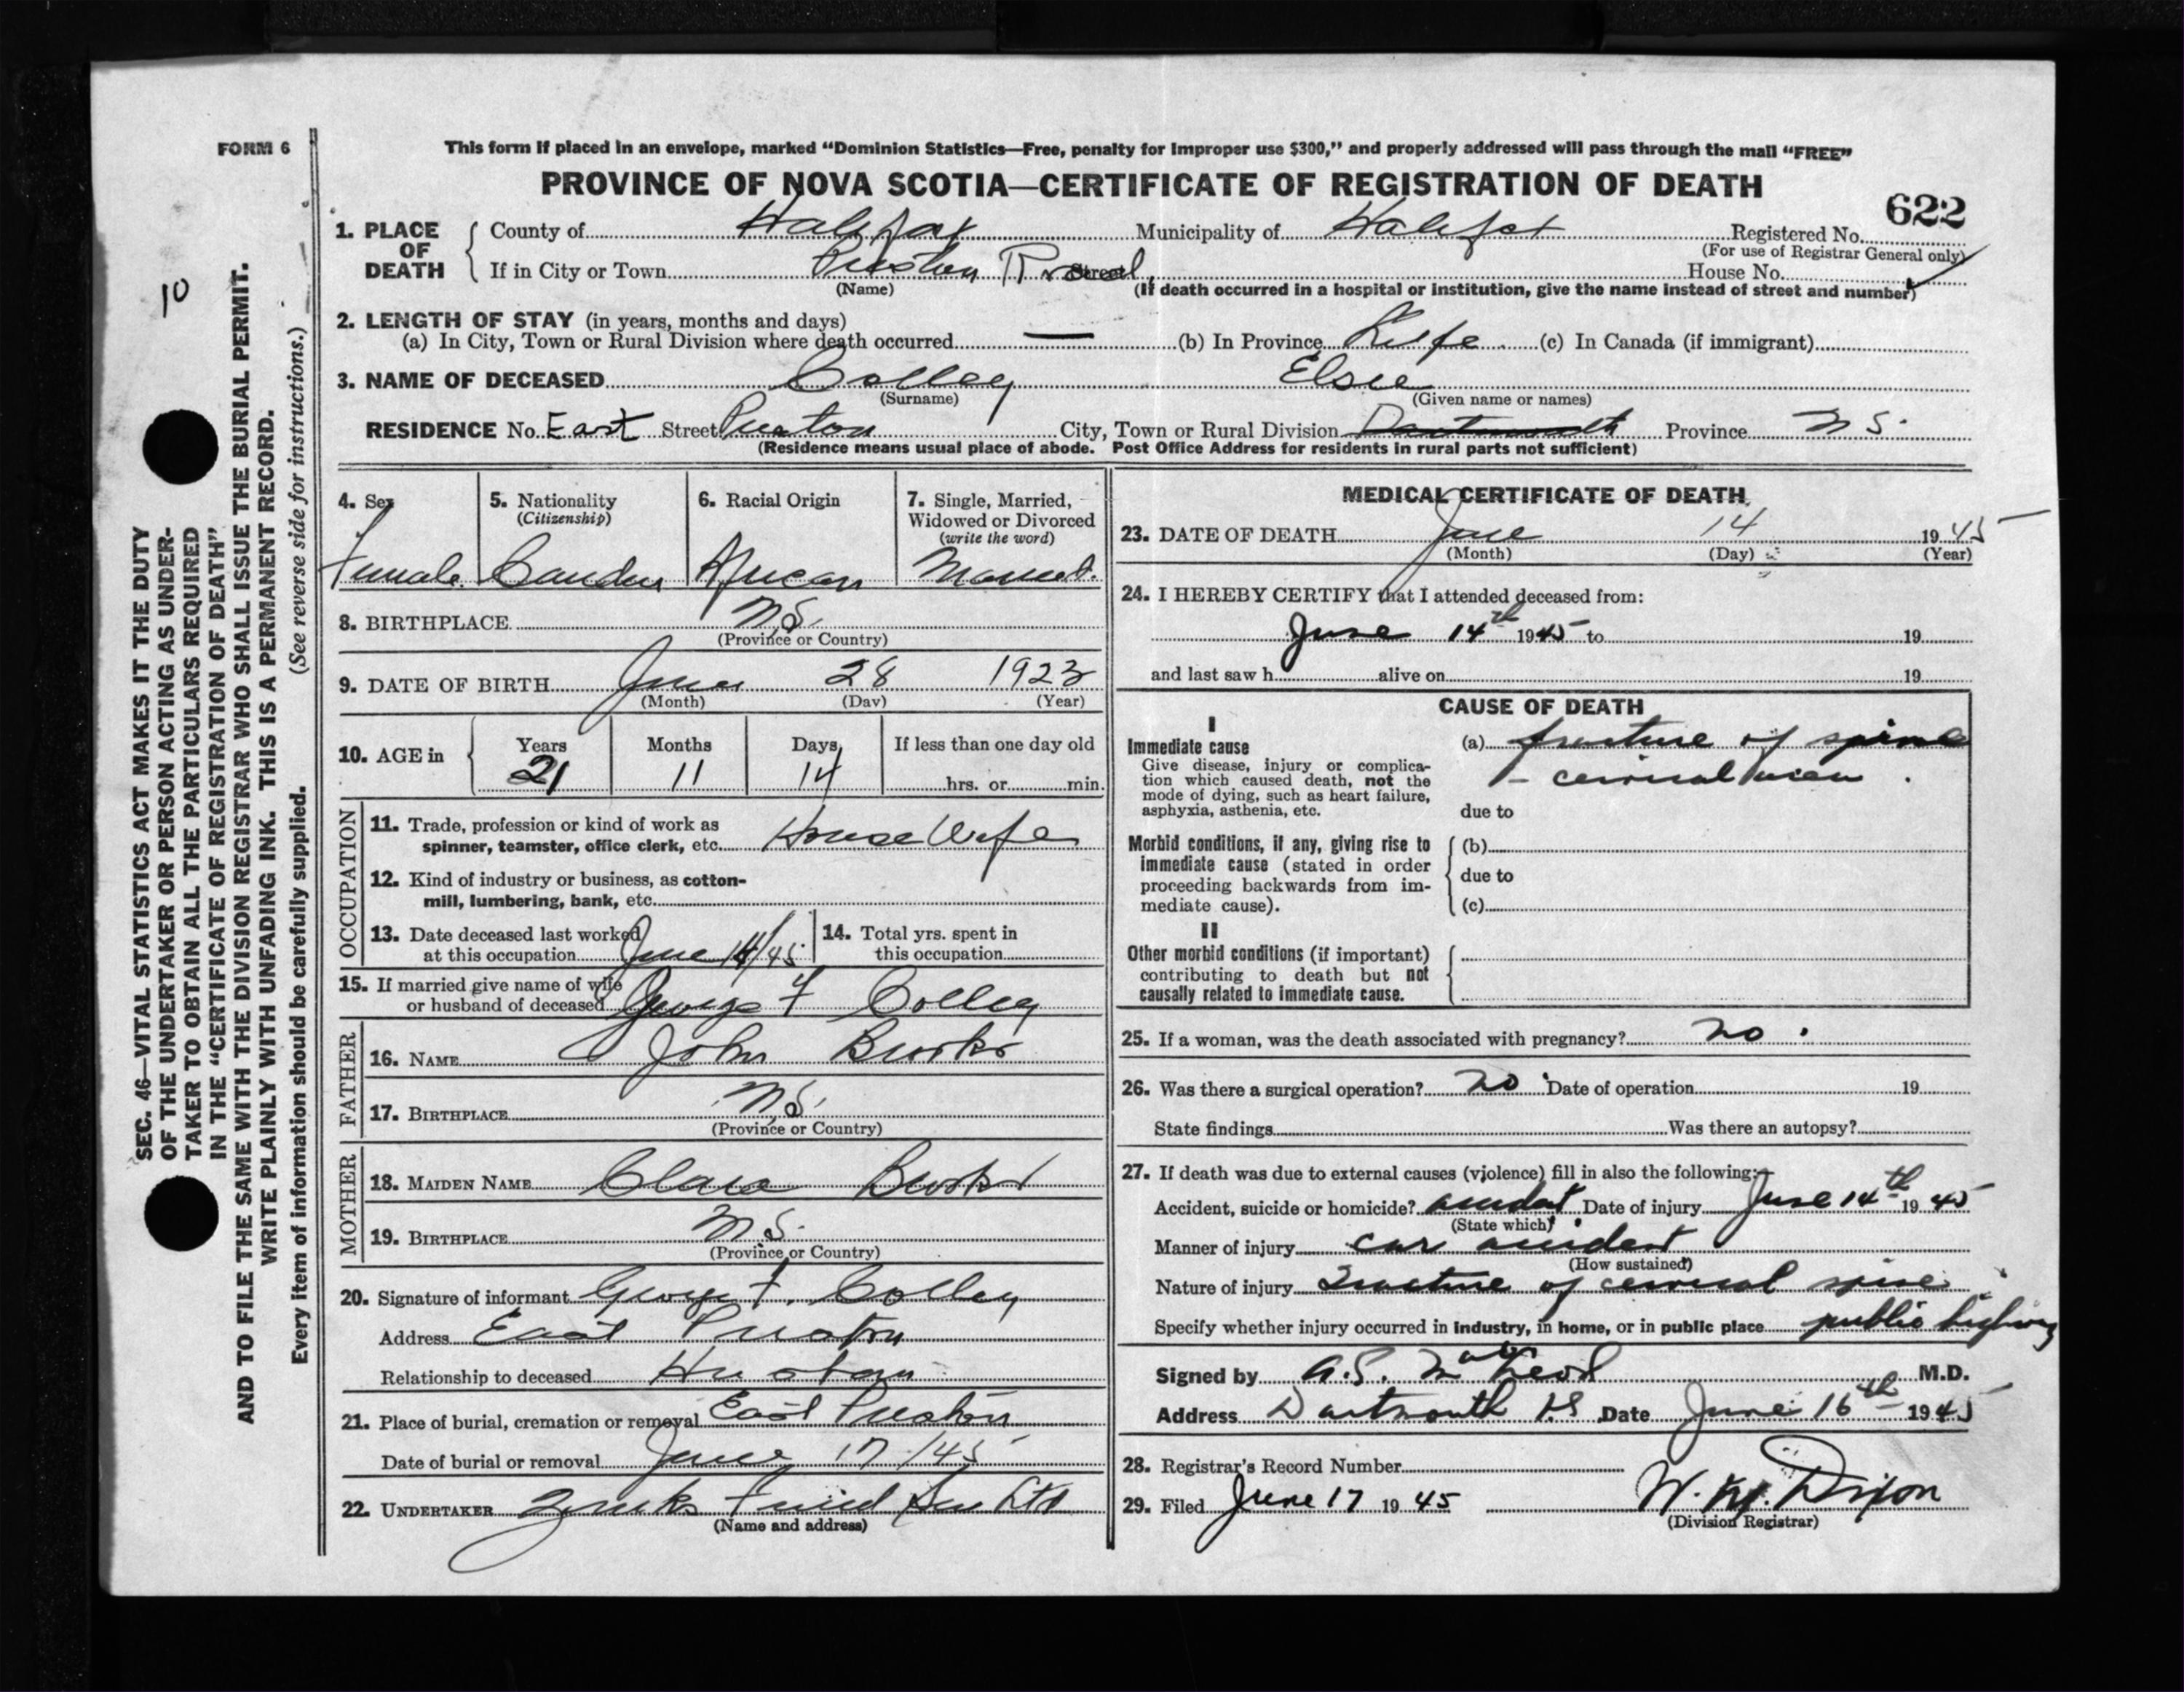 FORM 6
This form if placed in an envelope, marked “Dominion Statistics—Free, penalty for improper use $300,” and properly addressed will pass through the mail “FREE”
PROVINCE OF NOVA SCOTIA—CERTIFICATE OF REGISTRATION OF DEATH
622
10
SEC. 46—VITAL STATISTICS ACT MAKES IT THE DUTY
OF THE UNDERTAKER OR PERSON ACTING AS UNDER-
TAKER TO OBTAIN ALL THE PARTICULARS REQUIRED
IN THE “CERTIFICATE OF REGISTRATION OF DEATH”
AND TO FILE THE SAME WITH THE DIVISION REGISTRAR WHO SHALL ISSUE THE BURIAL PERMIT.
WRITE PLAINLY WITH UNFADING INK. THIS IS A PERMANENT RECORD.
Every item of information should be carefully supplied. (See reverse side for instructions.)
1. PLACE OF DEATH
County of Halifax Municipality of Halifax Registered No.
(For use of Registrar General only)
If in City or Town Preston Road Street House No.
(Name) (If death occurred in a hospital or institution, give the name instead of street and number)
2. LENGTH OF STAY (in years, months and days)
(a) In City, Town or Rural Division where death occurred — (b) In Province Life (c) In Canada (if immigrant)
3. NAME OF DECEASED Colley Elsie
(Surname) (Given name or names)
RESIDENCE No. East Street Preston City, Town or Rural Division Dartmouth Province N S.
(Residence means usual place of abode. Post Office Address for residents in rural parts not sufficient)
4. Sex 5. Nationality 6. Racial Origin 7. Single, Married,
(Citizenship) Widowed or Divorced
(write the word)
Female African Married.
8. BIRTHPLACE N S.
(Province or Country)
9. DATE OF BIRTH June 28 1923
(Month) (Day) (Year)
10. AGE in Years Months Days If less than one day old
21 11 14 hrs. or min.
OCCUPATION
11. Trade, profession or kind of work as
spinner, teamster, office clerk, etc. House Wife
12. Kind of industry or business, as cotton-
mill, lumbering, bank, etc.
13. Date deceased last worked
at this occupation June 14/45
14. Total yrs. spent in
this occupation
15. If married give name of wife
or husband of deceased George F Colley
FATHER
16. NAME John Brooks
17. BIRTHPLACE N.S.
(Province or Country)
MOTHER
18. MAIDEN NAME Clara Brooks
19. BIRTHPLACE N S.
(Province or Country)
20. Signature of informant George F. Colley
Address East Preston
Relationship to deceased Husban
21. Place of burial, cremation or removal East Preston
Date of burial or removal June 17/45
22. UNDERTAKER Ltd
(Name and address)
MEDICAL CERTIFICATE OF DEATH
23. DATE OF DEATH June 14 1945
(Month) (Day) (Year)
24. I HEREBY CERTIFY that I attended deceased from:
June 14th 1945 to 19
and last saw h alive on 19
CAUSE OF DEATH
I
Immediate cause
Give disease, injury or complica-
tion which caused death, not the
mode of dying, such as heart failure,
asphyxia, asthenia, etc.
(a) fracture of spine
- cervical area.
due to
Morbid conditions, if any, giving rise to
immediate cause (stated in order
proceeding backwards from im-
mediate cause).
(b)
due to
(c)
II
Other morbid conditions (if important)
contributing to death but not
causally related to immediate cause.
25. If a woman, was the death associated with pregnancy? no.
26. Was there a surgical operation? no Date of operation 19
State findings Was there an autopsy?
27. If death was due to external causes (violence) fill in also the following:—
Accident, suicide or homicide? accident Date of injury June 14th 1945
(State which)
Manner of injury car accident
(How sustained)
Nature of injury fracture of cervical spine
Specify whether injury occurred in industry, in home, or in public place public highway
Signed by M.D.
Address Dartmouth N.S Date June 16th 1945
28. Registrar's Record Number
29. Filed June 17 1945 W. M. Dixon
(Division Registrar)